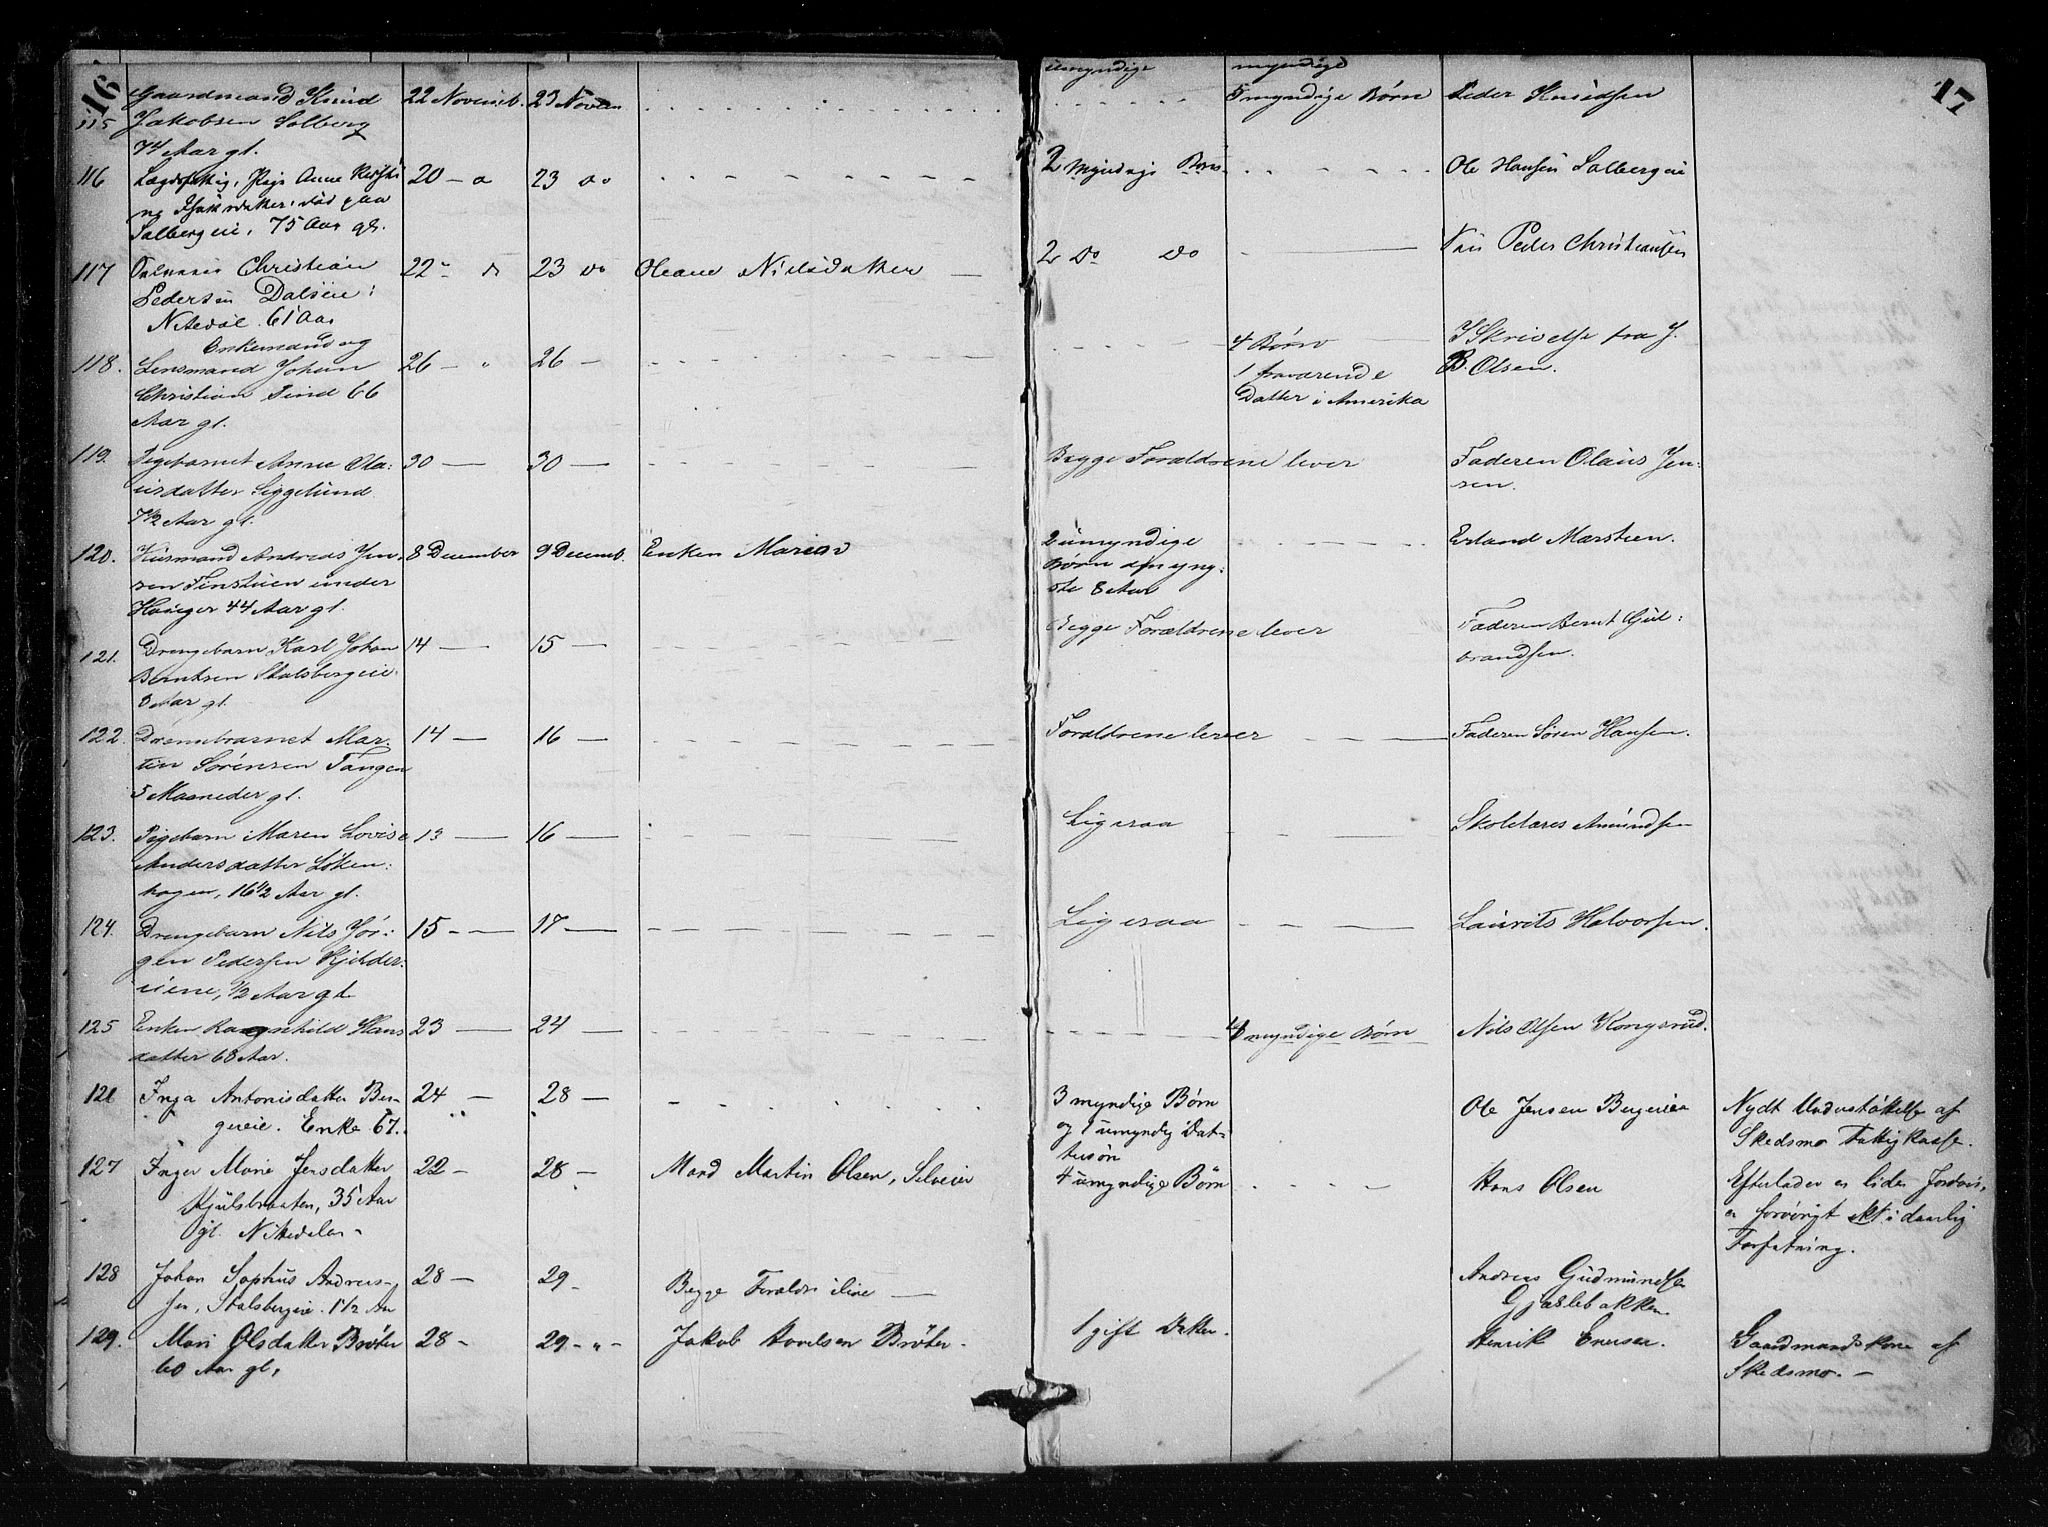 16
17
umyndige
myndige
115
Gaardmand Knud
Jakobsen Solberg
74 Aar gl.
22 Novemb.
23 Novem
5 myndige Børn
Peder Knudsen
116
Lægdsfattig, Pige Anne
Isaksdatter, død paa
Solbergeie, 75 Aar gl.
20 - o
23 do
2 Myndige Børn
Ole Hansen Solbergeie
117
Christian
Pedersen Dalseie i
Nitedal. 61 Aar
22 - do
23 do
Oleane Nielsdatter
2 do do
Peder Christiansen
118.
Enkemand og
Lensmand Johan
Christian Lind 66
Aar gl.
26 - "
26 -
4 Børn
1 fraværende
Datter i Amerika
I Skrivelse fra J.
B. Olsen.
119.
Pigebarnet Anne Ola-
usdatter Leggelund
7 1/2 Aar gl.
30 -
30 -
Begge Forældrene lever
Faderen Olaus Jen-
sen.
120.
Husmand Andreas Jen-
sen Finstuen under
Hauger 44 Aar gl.
8 December
9 Decemb.
Enken Maria
2 umyndige
Børn d. yng-
ste 8 Aar
Erland Marstuen.
121.
Drengebarn Karl Johan
Berntsen Stalsbergeie
3 Aar gl.
14 -
15 -
Begge Forældrene lever
Faderen Bernt Gul-
brandsen.
122.
Drengebarnet Mar-
tin Sørensen Tangen
5 Maaneder gl.
14 -
16 -
Forældrene lever
Faderen Søren Hansen.
123.
Pigebarn Maren Lovise
Andersdatter Løken-
hagen, 16 1/2 Aar gl.
13 -
16 -
Ligesaa
Skolelærer Amundsen
124.
Drengebarn Nils Jør-
gen Pedersen Kjelder-
uiene, 1/2 Aar gl.
15 -
17 -
Ligesaa
Laurits Halvorsen.
125
Enken Ragnhild Hans
datter 68 Aar.
23 -
24 -
4 myndige Børn
Nils Olsen Kongsrud.
126
Inga Antonisdatter Ber-
gereie. Enke 67.
24 -
28 -
3 myndige Børn
og 1 umyndig Dat-
tersøn
Ole Jensen Bergereie
Nydt Understøttelse af
Skedsmo Fattigkasse.
127
Inger Marie Jensdatter
Kjulsbraaten, 35 Aar
gl. Nittedalen -
22 -
28 -
Mand Martin Olsen, Selveier
4 umyndige Børn
Hans Olsen
Efterlader en liden Jordvei,
er forøvrigt i daarlig
Forfatning.
128
Johan Sophus Andreas-
sen, Stalsbergeie. 1 1/2 Aar
28 -
29 -
Begge Forældre ilive
Andreas Gudmundsen
Gjæslebakken
129.
Mari Olsdatter Brøter
60 Aar gl,
28 -
29 - " -
Jakob Hovelsen Brøter -
1 gift Datter.
Henrik Enersen.
Gaardmandskone af
Skedsmo. -